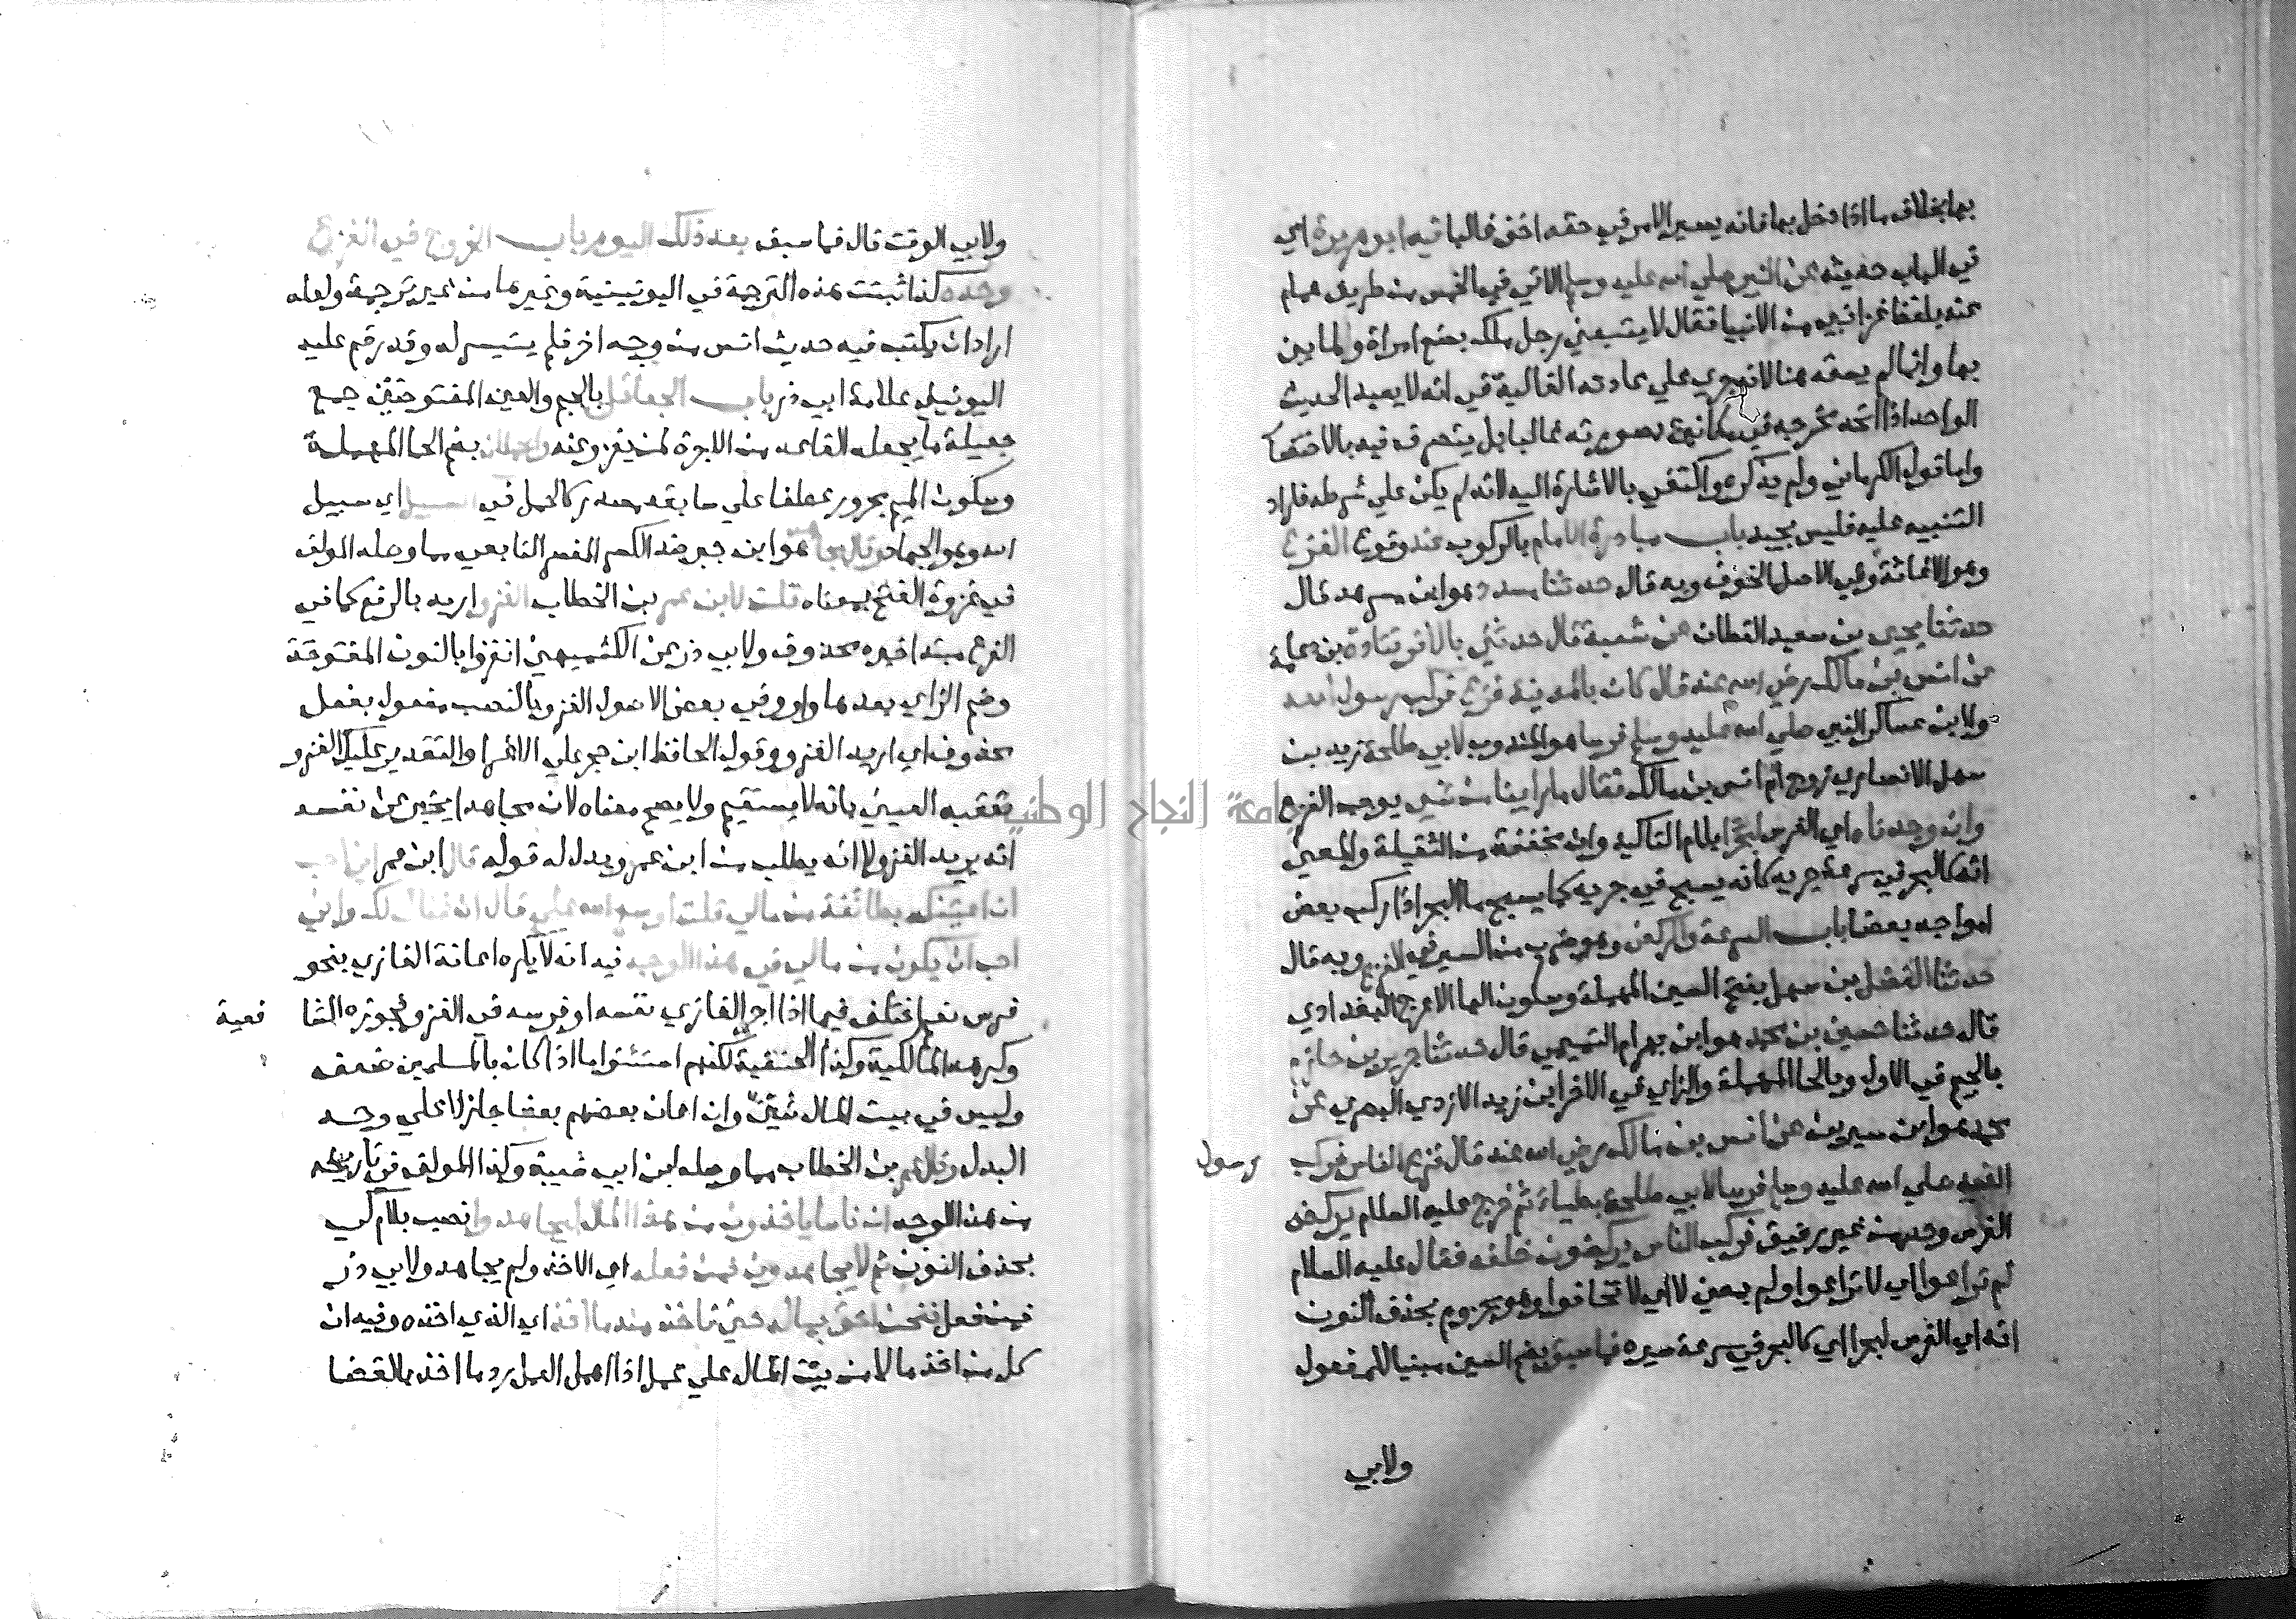 بها بخلاف ما اذا دخل بها فانه يصير الامر في حقه اخف غالبا فيه ابو هريرة اي
في الباب حديثه عن النبي صلي الله عليه وسلم الاتي في الخمس من طريق همام
عنه بلفظ غزا نبي من الانبيا فقال لا يتبعني رجل ملك بضع امراة ولما يبن
بها وانما لم يسقه هنا لانه جري علي عادته الغالبة في انه لا يعيد الحديث
الواحد اذا اتحد مخرجه في مكانين بصورته غالبا بل يتصرف فيه بالاختصار
واما قول الكرماني ولم يذكره واكتفي بالاشارة اليه لانه لم يكن علي شرطه فاراد
التنبيه عليه فليس بجيد باب مبادرة الامام بالركوب عند وقوع الفزع
وهو الاغاثة وفي الاصل الخوف وبه قال حدثنا مسدد هو ابن مسرهد قال
حدثنا يحيي بن سعيد القطان عن شعبة قال حدثني بالافراد قتادة بن دعامة
عن انس بن مالك رضي الله عنه قال كان بالمدينة فزع فركب رسول الله
ولابن عساكر النبي صلي الله عليه وسلم فرسا هو المندوب لابي طلحة زيد بن
سهل الانصاري زوج ام انس بن مالك فقال ما راينا من شي يوجب الفزع
وان وجدناه اي الفرس لبحرا بلام التاكيد وان مخففة من الثقيلة والمعني
انه كالبحر في سرعة جريه كانه يسبح في جريه كما يسبح ماالبحر اذا ركب بعض
امواجه بعضا باب السرعة والركض وهو ضرب من السير في الفزع وبه قال
حدثنا الفضل بن سهل بفتح السين المهملة وسكون الها الاعرج البغدادي
قال حدثنا حسين بن محمد هو ابن بهرام التميمي قال حدثنا جرير بن حازم
بالجيم في الاول وبالحا المهملة والزاي في الاخر ابن زيد الازدي البصري عن
محمد هو ابن سيرين عن انس بن مالك رضي الله عنه قال فزع الناس فركب رسول
الله صلي الله عليه وسلم فرسا لابي طلحة بطيا ثم خرج عليه السلام يركض
الفرس وحده من غير رفيق فركب الناس يركضون خلفه فقال عليه السلام
لم تراعوا اي لا تراعوا ولم بمعني لا اي لا تخافوا وهو مجزوم بحذف النون
انه اي الفرس لبحر اي كالبحر في سرعة سيره فما سبق بضم السين مبنيا للمفعول
ولابي
ولابي الوقت قال فما سبق بعد ذلك اليوم باب الخروج في الفزع
وحده كذا ثبتت هذه الترجمة في اليونينية وغيرها من غير ترجمة ولعله
اراد ان يكتب فيه حديث انس من وجه اخر فلم يتيسر له وقد رقم عليه
اليونيني علامة ابي ذر باب الجعائل بالجيم والعين المفتوحتين جمع
جعيلة ما يجعله القاعد من الاجرة لمن يغزو عنه والحملان بضم الحا المهملة
وسكون الميم مجرور عطفا علي سابقه مصدر كالحمل في السبيل اي سبيل
الله وهو الجهاد وقال مجاهد هو ابن جبر ضد الكسر المفسر التابعي مما وصله المولف
في غزوة الفتح بمعناه قلت لابن عمر بن الخطاب الغزو اريد بالرفع كما في
الفرع مبتدا خبره محذوف ولابي ذر عن الكشميهني انغزوا بالنون المفتوحة
وضم الزاي بعدها واو وفي بعض الاصول الغزو بالنصب مفعول بفعل
محذوف اي اريد الغزو وقول الحافظ ابن حجر علي الاغرا والتقدير عليك الغزو
تعقبه العيني بانه لا يستقيم ولا يصح معناه لان مجاهدا يخبر عن نفسه
انه يريد الغزو لا انه يطلب من ابن عمر ويدل له قوله قال ابن عمر اني احب
ان اعينك بطائفة من مالي قلت اوسع الله علي قال ان غناك لك واني
احب ان يكون من مالي في هذا الوجه فيه انه لا يكره اعانة الغازي بنحو
فرس نعم اختلف فيما اذا اجر الغازي نفسه او فرسه في الغزو فجوزه الشا فعية
وكرهه المالكية وكذا الحنفية لكنهم استثنوا ما اذا كان بالمسلمين ضعف
وليس في بيت المال شي وان اعان بعضهم بعضا جاز لا علي وجه
البدل وقال عمر بن الخطاب مما وصله ابن ابي شيبة وكذا المولف في تاريخه
من هذا الوجه ان ناسا ياخذون من هذا المال ليجاهدوا نصب بلام كي
بحذف النون ثم لا يجاهدون فمن فعله اي الاخذ ولم يجاهد ولابي ذر
فمن فعل فنحن احق بماله حتي ناخذ منه ما اخذ اي الذي اخذه وفيه ان
كل من اخذ مالا من بيت المال علي عمل اذا اهمل العمل رد ما اخذ بالقضا
جامعة النجاح الوطني